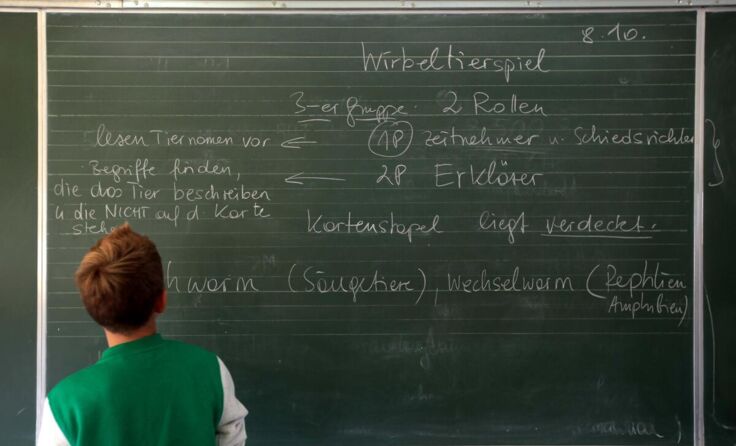 8.10.
Wirbeltierspiel
3-er gruppe. 2 Rollen
lesen Tiernamen vor ← 1P Zeitnehmer u. Schiedsrichter
Begriffe finden,
die das Tier beschreiben ← 2P Erklärer
u die NICHT auf d. Karte
Kartenstapel liegt verdeckt.
warm (Säugetiere), Wechselwarm (Reptilien
Amphibien)